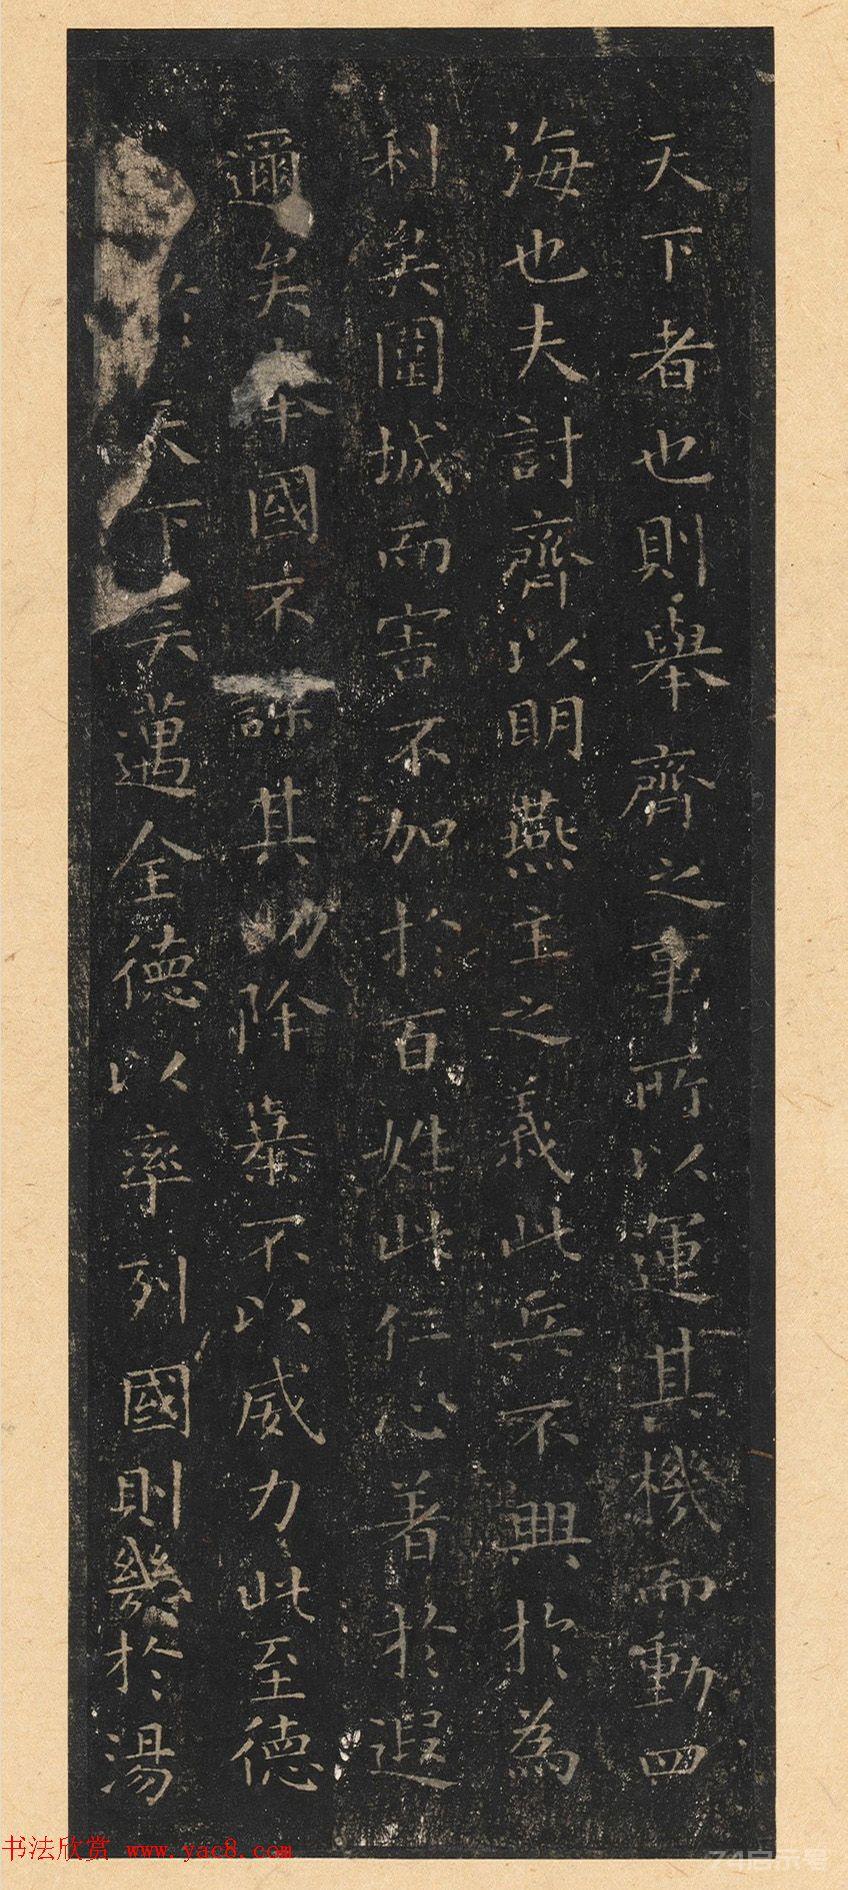 天下者也則舉齊之事所以運其機而動四
海也夫討齊以明燕主之義此兵不興於為
利矣圍城而害不加於百姓此仁心著於遐
邇矣舉國不謀其功除暴不以威力此至德
於天下矣邁全德以率列國則幾於湯
书法欣赏 www.yac8.com